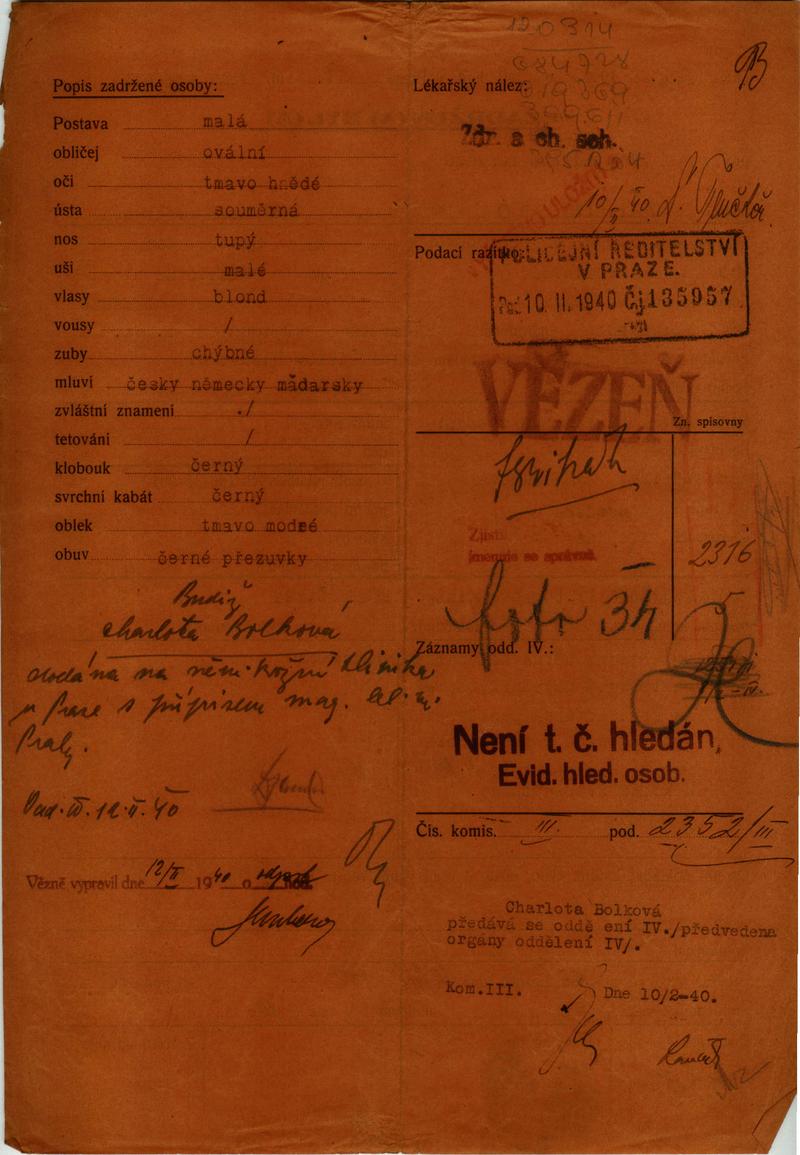 Popis zadržené osoby:
Postava malá
obličej ovální
oči tmavo hnědé
ústa souměrná
nos tupý
uši malé
vlasy blond
vousy /
zuby chybné
mluví česky německy maďarsky
zvláštní znamení ./
tetování /
klobouk černý
svrchní kabát černý
oblek tmavo modré
obuv černé přezuvky
Budiž
Charlota Bolková
dodána na něm. kožní kliniku
v Praze s přípisem mag. hl. m.
Prahy.
Odd. IV. 12.II.40
Vězně vypravil dne 12/II 1940 o hod.
120314
Lékařský nález:
Zdr. a ch. sch.
10/II 40.
Podací razítko:
POLICEJNÍ ŘEDITELSTVÍ
V PRAZE.
10. II. 1940 Čj 135957
VĚZEŇ
Zn. spisovny
2316
foto 34
Záznamy odd. IV.:
Není t. č. hledán,
Evid. hled. osob.
Čís. komis. III. pod. 2352/III
Charlota Bolková
předává se oddě ení IV./předvedena
orgány oddělení IV/.
Kom.III. Dne 10/2-40.